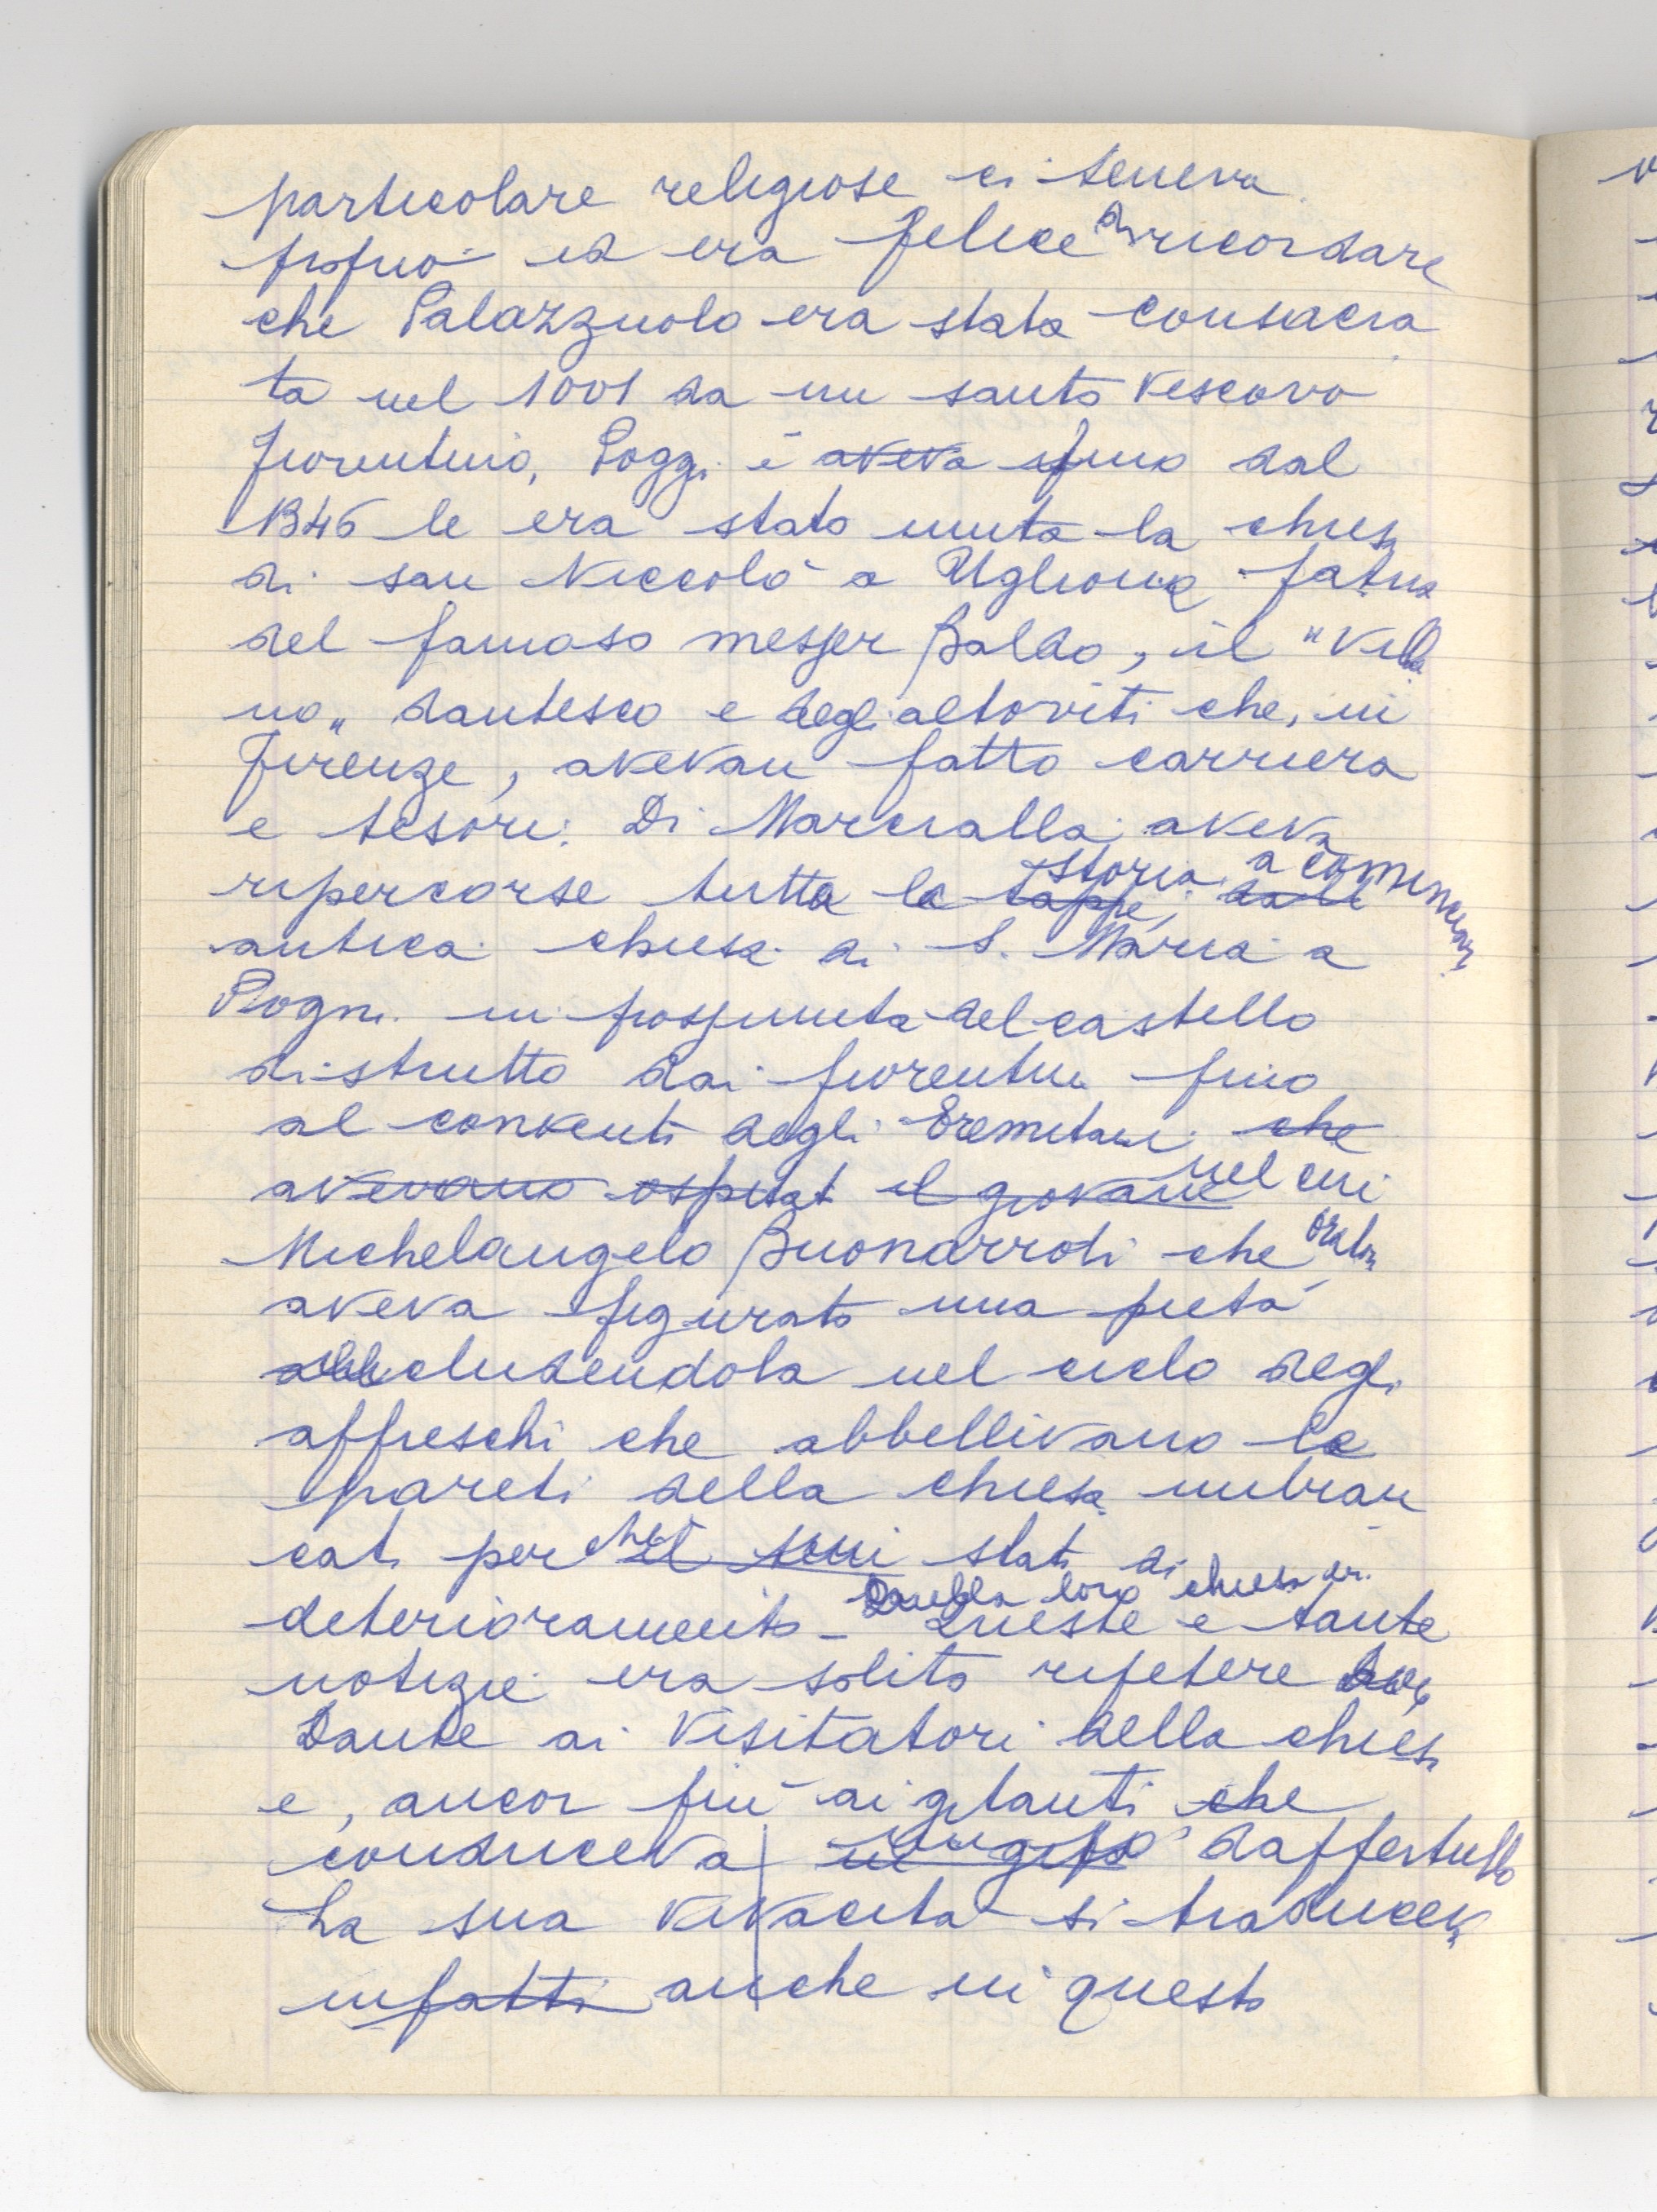 particolare religiose ci teneva
proprio ed era felice di ricordare
che Palazzuolo era stata consacra
ta nel 1001 da un santo Vescovo
fiorentino, Poggi e aveva fino dal
1346 le era stato unita la chiesa
di san Niccolò a Uglione patria
del famoso messer Baldo, il "Villa
no" dantesco e degli altoviti che, in
Firenze, avevan fatto carriera
e tesori. Di Marcialla aveva
storia a cominciar
ripercorse tutta la tappe, dalla
antica chiesa di S. Maria a
Pogni in prossimità del castello
distrutto dai fiorentini fino
al conventi degli Eremitani che
avevano ospitat il giovane nel cui
Michelangelo Buonarroti che
aveva figurato una pietà
cludendola nel ciclo degli
affreschi che abbellivano le
pareti della chiesa imbian
cati perché stati di
della loro chiesa
deterioramento - Queste e tante
notizie era solito ripetere don
Dante ai Visitatori della chiesa
e, ancor più ai gitanti che
conduceva in giro dappertutto
La sua vivacità si traduceva
infatti anche in questo